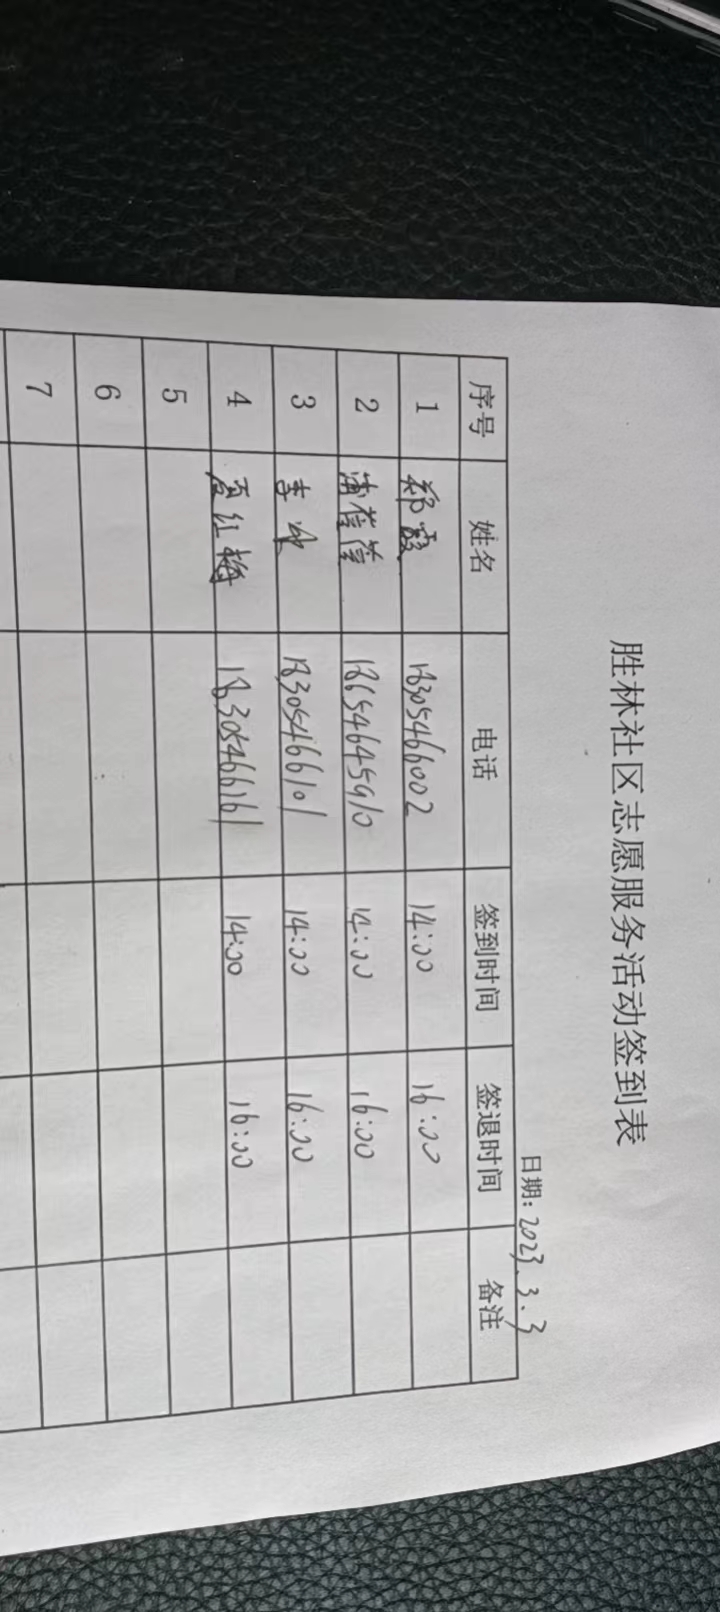 胜林社区志愿服务活动签到表
日期: 2023.3.3
序号 姓名 电话 签到时间 签退时间 备注
1 郑霞 18305466002 14:00 16:00
2 14:00 16:00
3 李 18305466101 14:00 16:00
4 夏红梅 18305466161 14:00 16:00
5
6
7